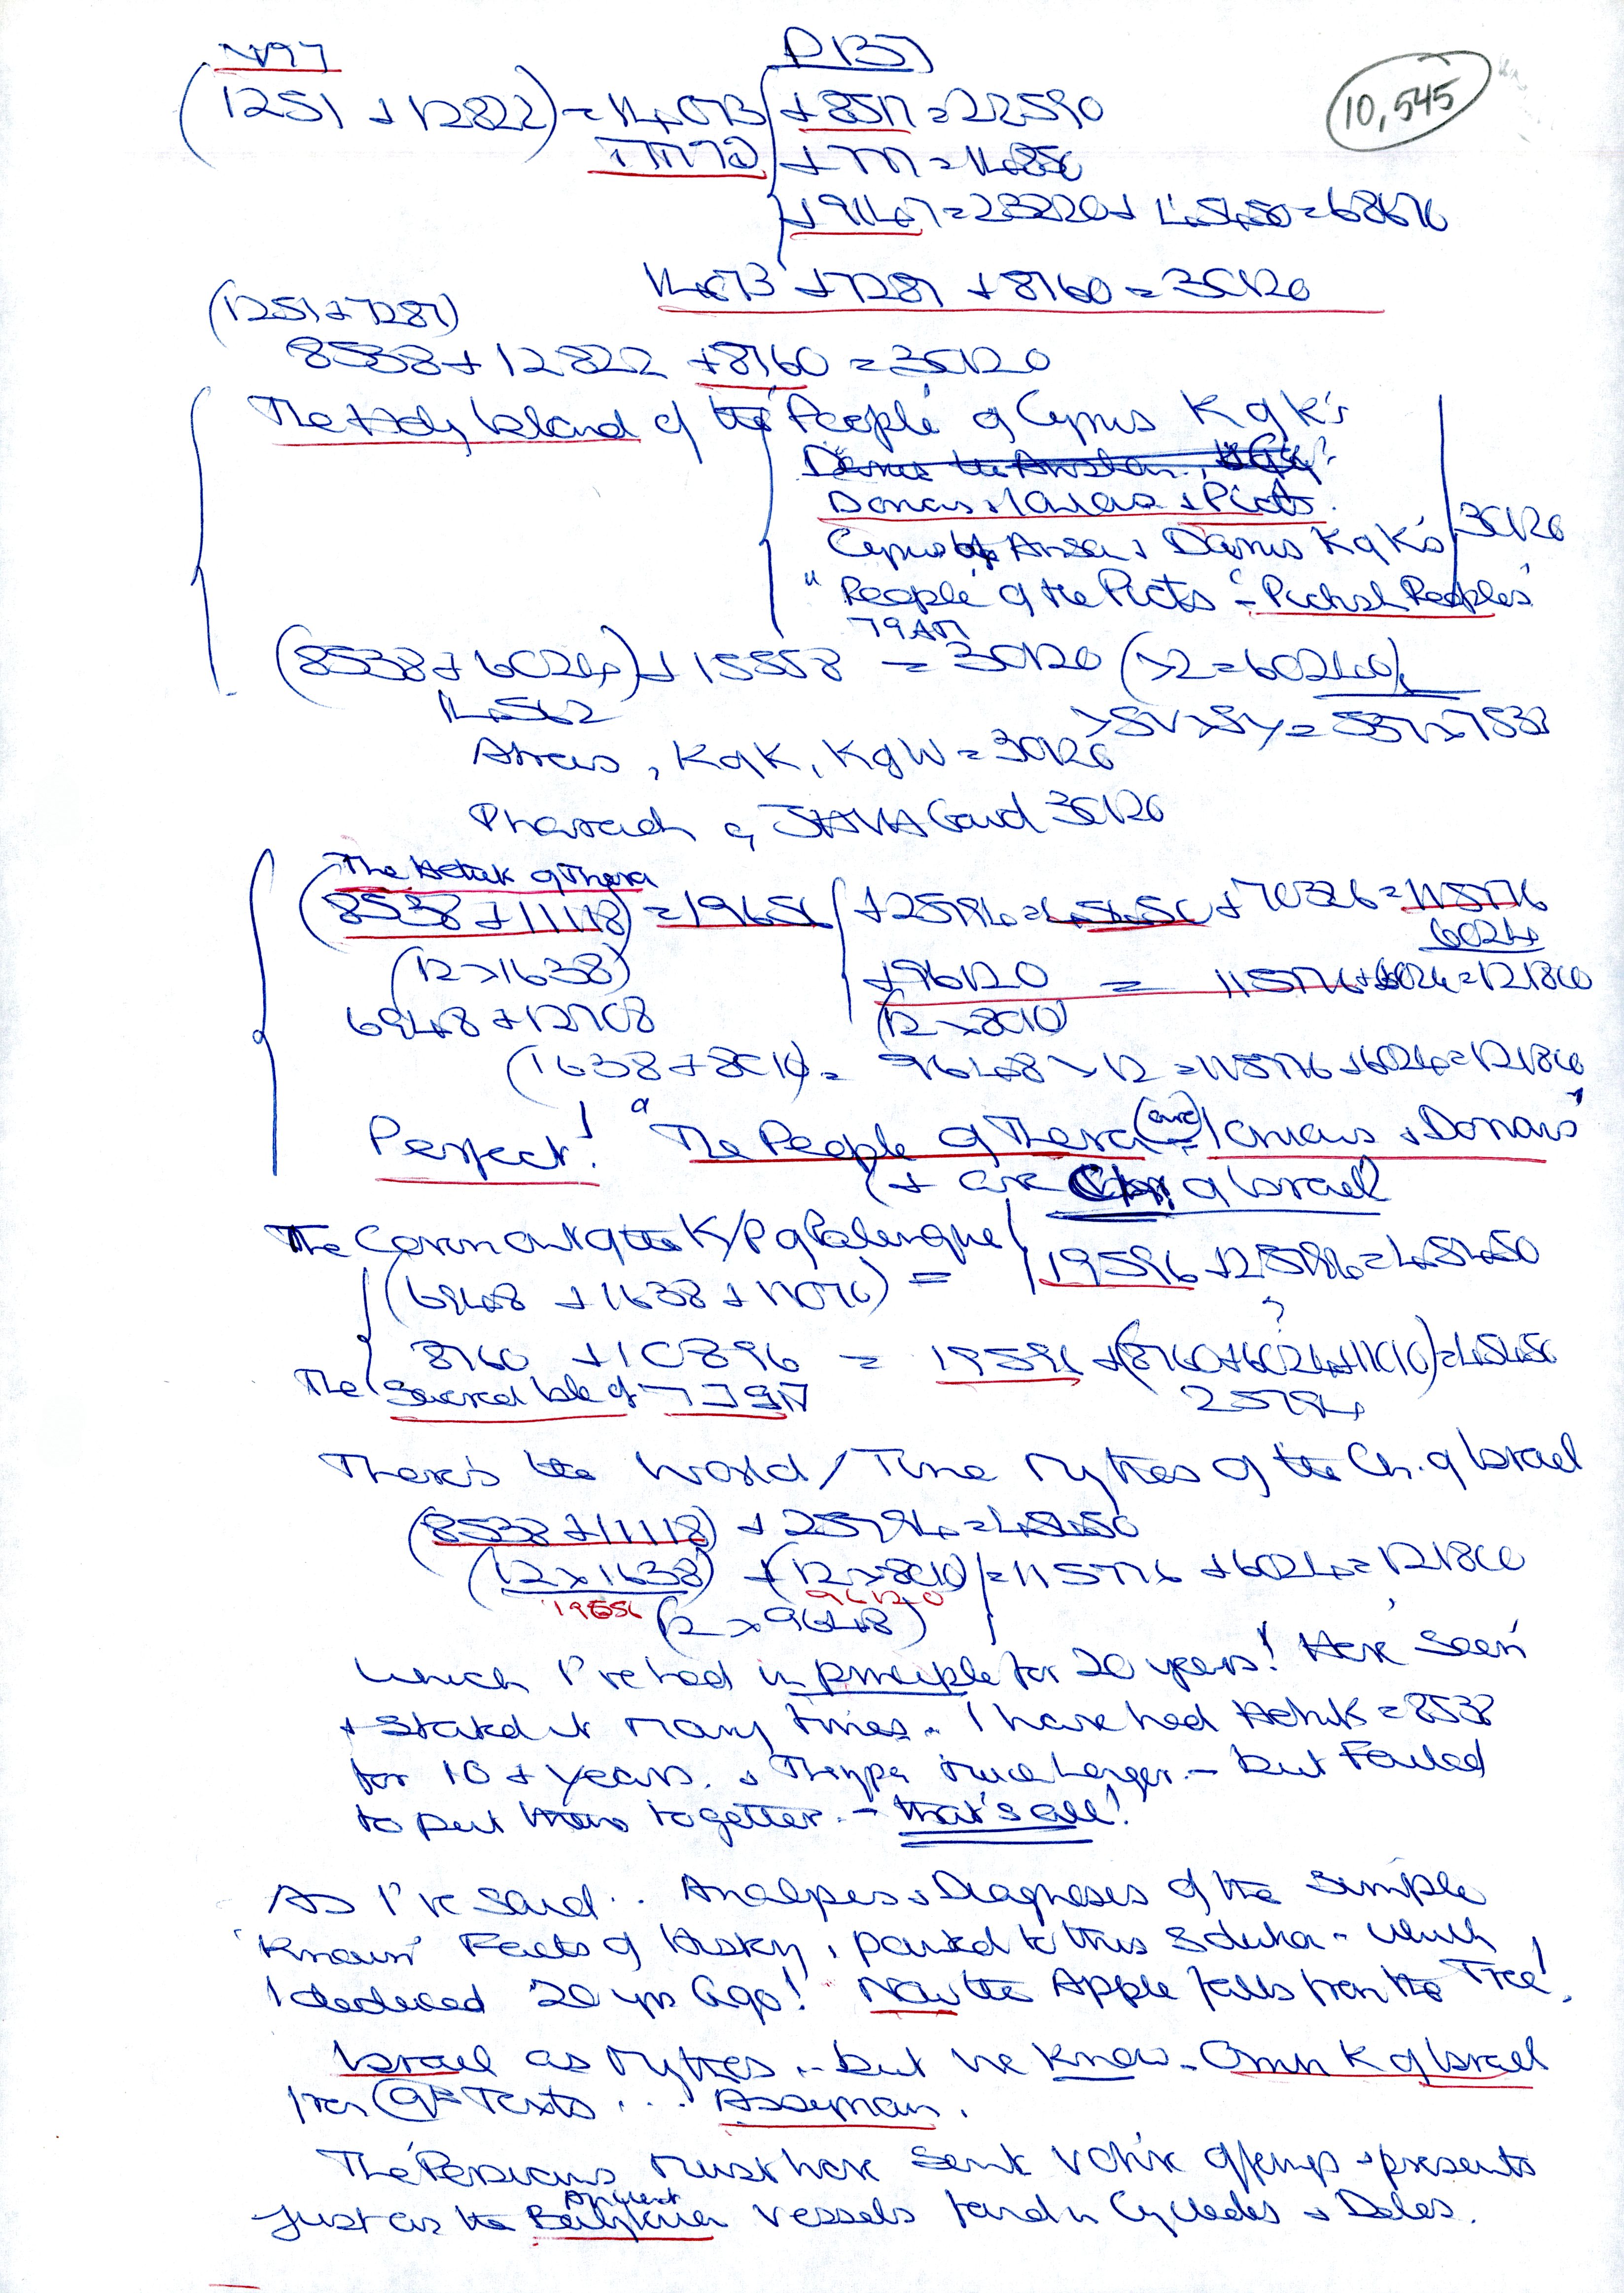 V97 P137
10,545
(1251 + 12822) = 14073 + 8517 = 22590
+ 777 = 14850
+ 9147 = 23220 + 45450 = 68670
14073 + 7287 + 8760 = 30120
(1251 + 7287)
8538 + 12822 + 8760 = 30120
The Holy Island of the 'People' of Cyrus K of K's
Donans, Ionians + Picts.
Cyrus of Ansan + Darius K of K's 30120
"'People' of the Picts = Pictish Peoples"
(8538 + 6024) + 15558 = 30120 (×2 = 60240)
14562
Atreus, K of K, K of W = 30120
Pharaoh of 30120
The Hetuk of Thera
(8538 + 11118) = 19656 + 25794 = 45450 + 70326 = 115776
6024
(12 × 1638) + 96120 = 115776 + 6024 = 121800
6948 + 12708 (12 × 8010)
(1638 + 8010) = 9648 × 12 = 115776 + 6024 = 121800
Perfect! "The People of Thera (are) = Ionians + Donans"
(+ are Chn of Israel
The Covenant of the K/P of Palenque
(6948 + 1638 + 11070) = 19596 + 25794 = 45450
?
8760 + 10896 = 19596 + (8760 + 6024 + 11010) = 45450
The Sacred Isle of 25794
There's the World/Time Mythes of the Ch. of Israel
(8538 + 11118) + 25794 = 45450
(12 × 1638) + (12 × 8010) = 115776 + 6024 = 121800
19656 96120
(12 × 9648)
Which I've had in principle for 20 years! Have 'seen'
+ stated it many times. I have had Hetuk = 8538
for 10 + years. + - but Failed
to put them together. - that's all!
As I've said.. Analyses + Diagnoses of the simple
'Known' Facts of History, pointed to this Solution - which
I deduced 20 yrs ago! Now the Apple falls from the Tree!
Israel as Mythes .. but we know - Omri K of Israel
from Texts ... Assyrian.
The Persians must have sent votive offerings + presents
Ancient
just as the vessels found in Cyclades + Delos.